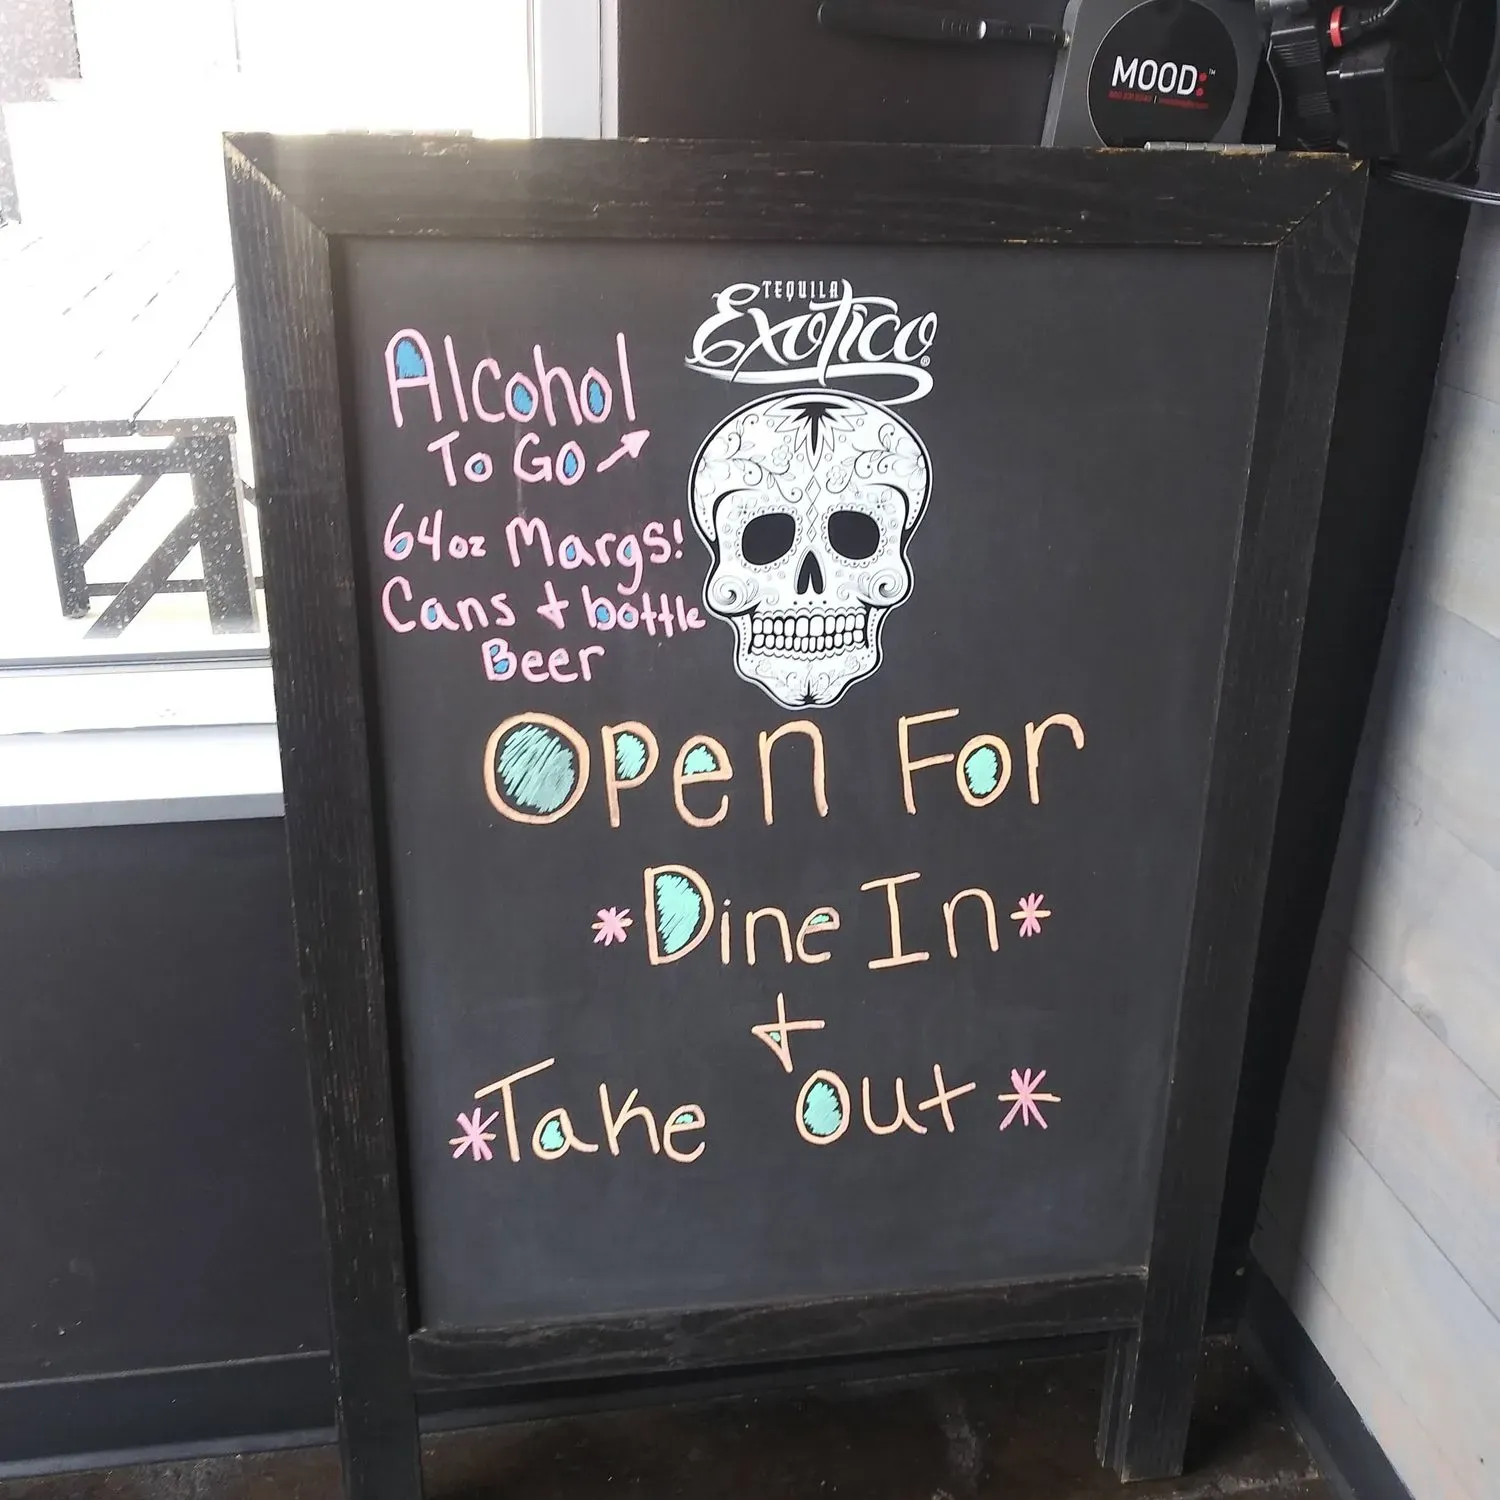 MOOD:™
TEQUILA
Exotico®
Alcohol
To Go
64oz Margs!
Cans + bottle
Beer
Open For
*Dine In*
+
*Take Out*